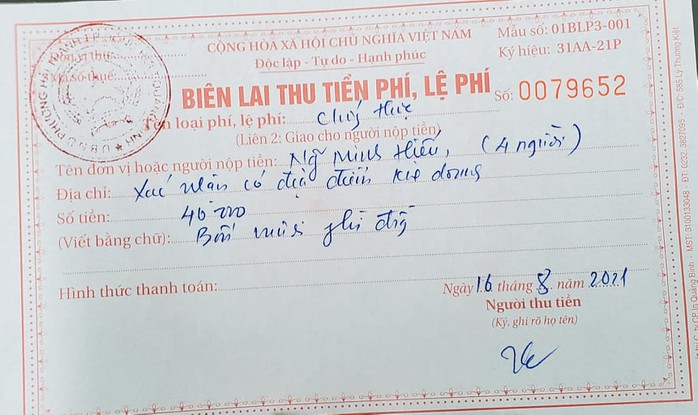 CỘNG HÒA XÃ HỘI CHỦ NGHĨA VIỆT NAM
Độc lập - Tự do - Hạnh phúc
Mẫu số: 01BLP3-001
Ký hiệu: 31AA-21P
Đơn vị thu:
Mã số thuế:
BIÊN LAI THU TIỀN PHÍ, LỆ PHÍ
Số: 0079652
Tên loại phí, lệ phí: Chứng thực
(Liên 2: Giao cho người nộp tiền)
Tên đơn vị hoặc người nộp tiền: Ng Minh Hiếu, (4 người)
Địa chỉ: Xác nhận có đặc điểm
Số tiền: 40 000
(Viết bằng chữ): Bốn mươi nghì đồng
Hình thức thanh toán:
Ngày 16 tháng 8 năm 2021
Người thu tiền
(Ký, ghi rõ họ tên)
MST: 3100133048 - ĐT: 0232.3827095 - Đ/C: 585 Lý Thường Kiệt
CP In Quảng Bình